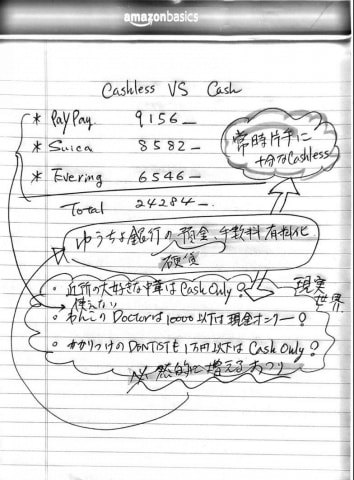 amazonbasics
Cashless VS Cash
* PayPay 9156—
* Suica 8582—
* Evering 6546—
Total 24284—.
常時片手に
十分なCashless
ゆうちょ銀行の預金手数料有料化
硬貨
現実
世界
・近所の大好きな中華はCash Only?
使えない
・わんこのDoctorは10000以下は現金オンリー?
・かかりつけのDENTISTも1万円以下はCash Only?
的に増える